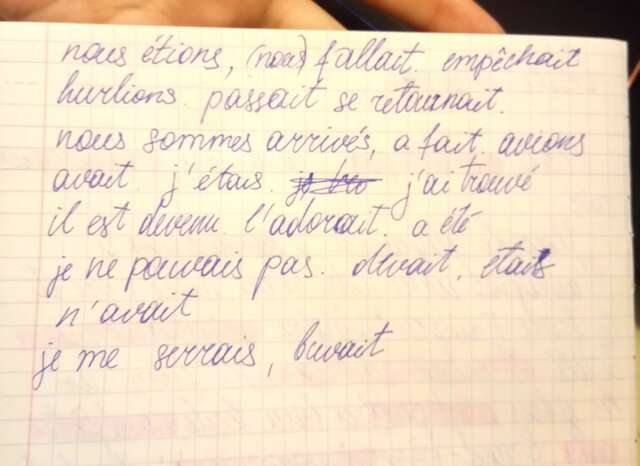 nous étions, (nous) fallait. empêchait
hurlions. passait se retournait.
nous sommes arrivés, a fait. avions
avait. j'étais. j'ai trouvé
il est devenu. l'adorait. a été
je ne pouvais pas. devait, étais
n'avait
je me serrais, buvait